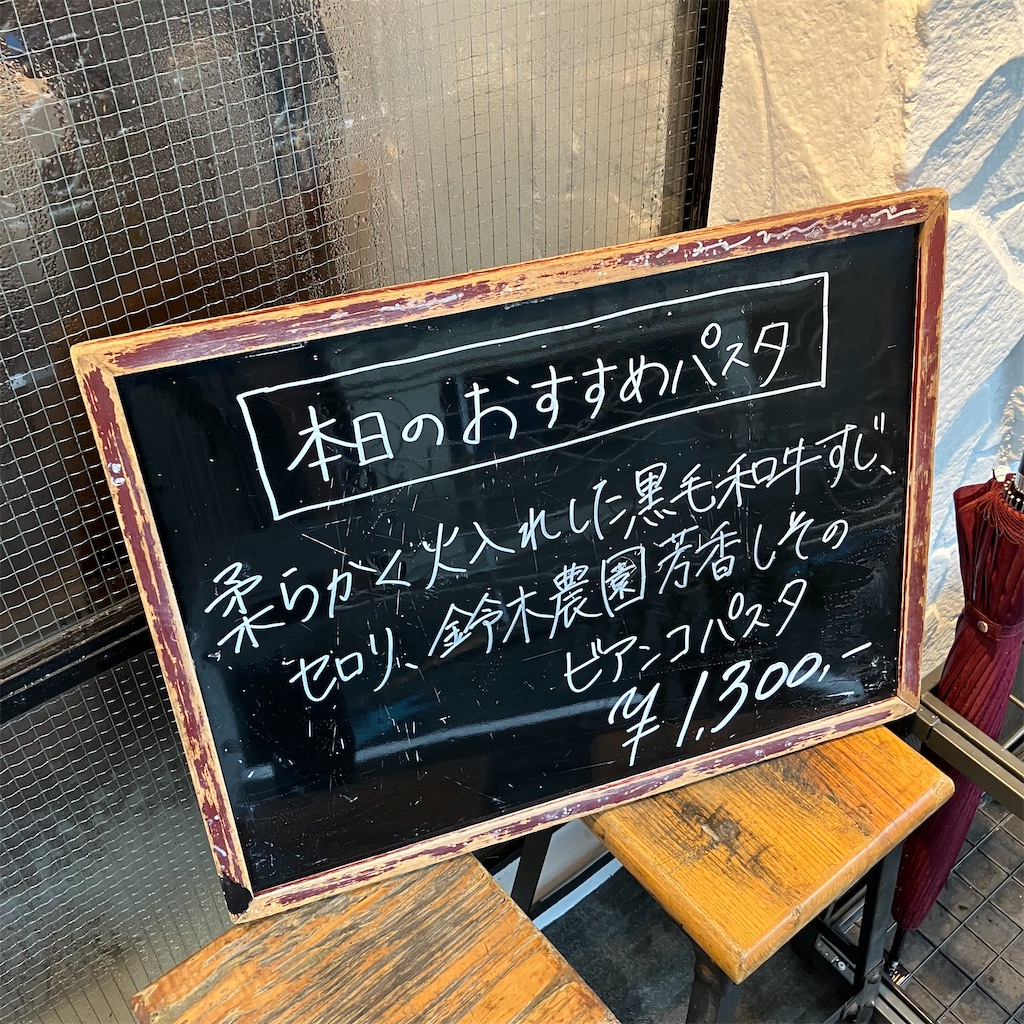 本日のおすすめパスタ
柔らかく火入れした黒毛和牛すじ、
セロリ、鈴木農園芳香しその
ビアンコパスタ
¥1,300,-